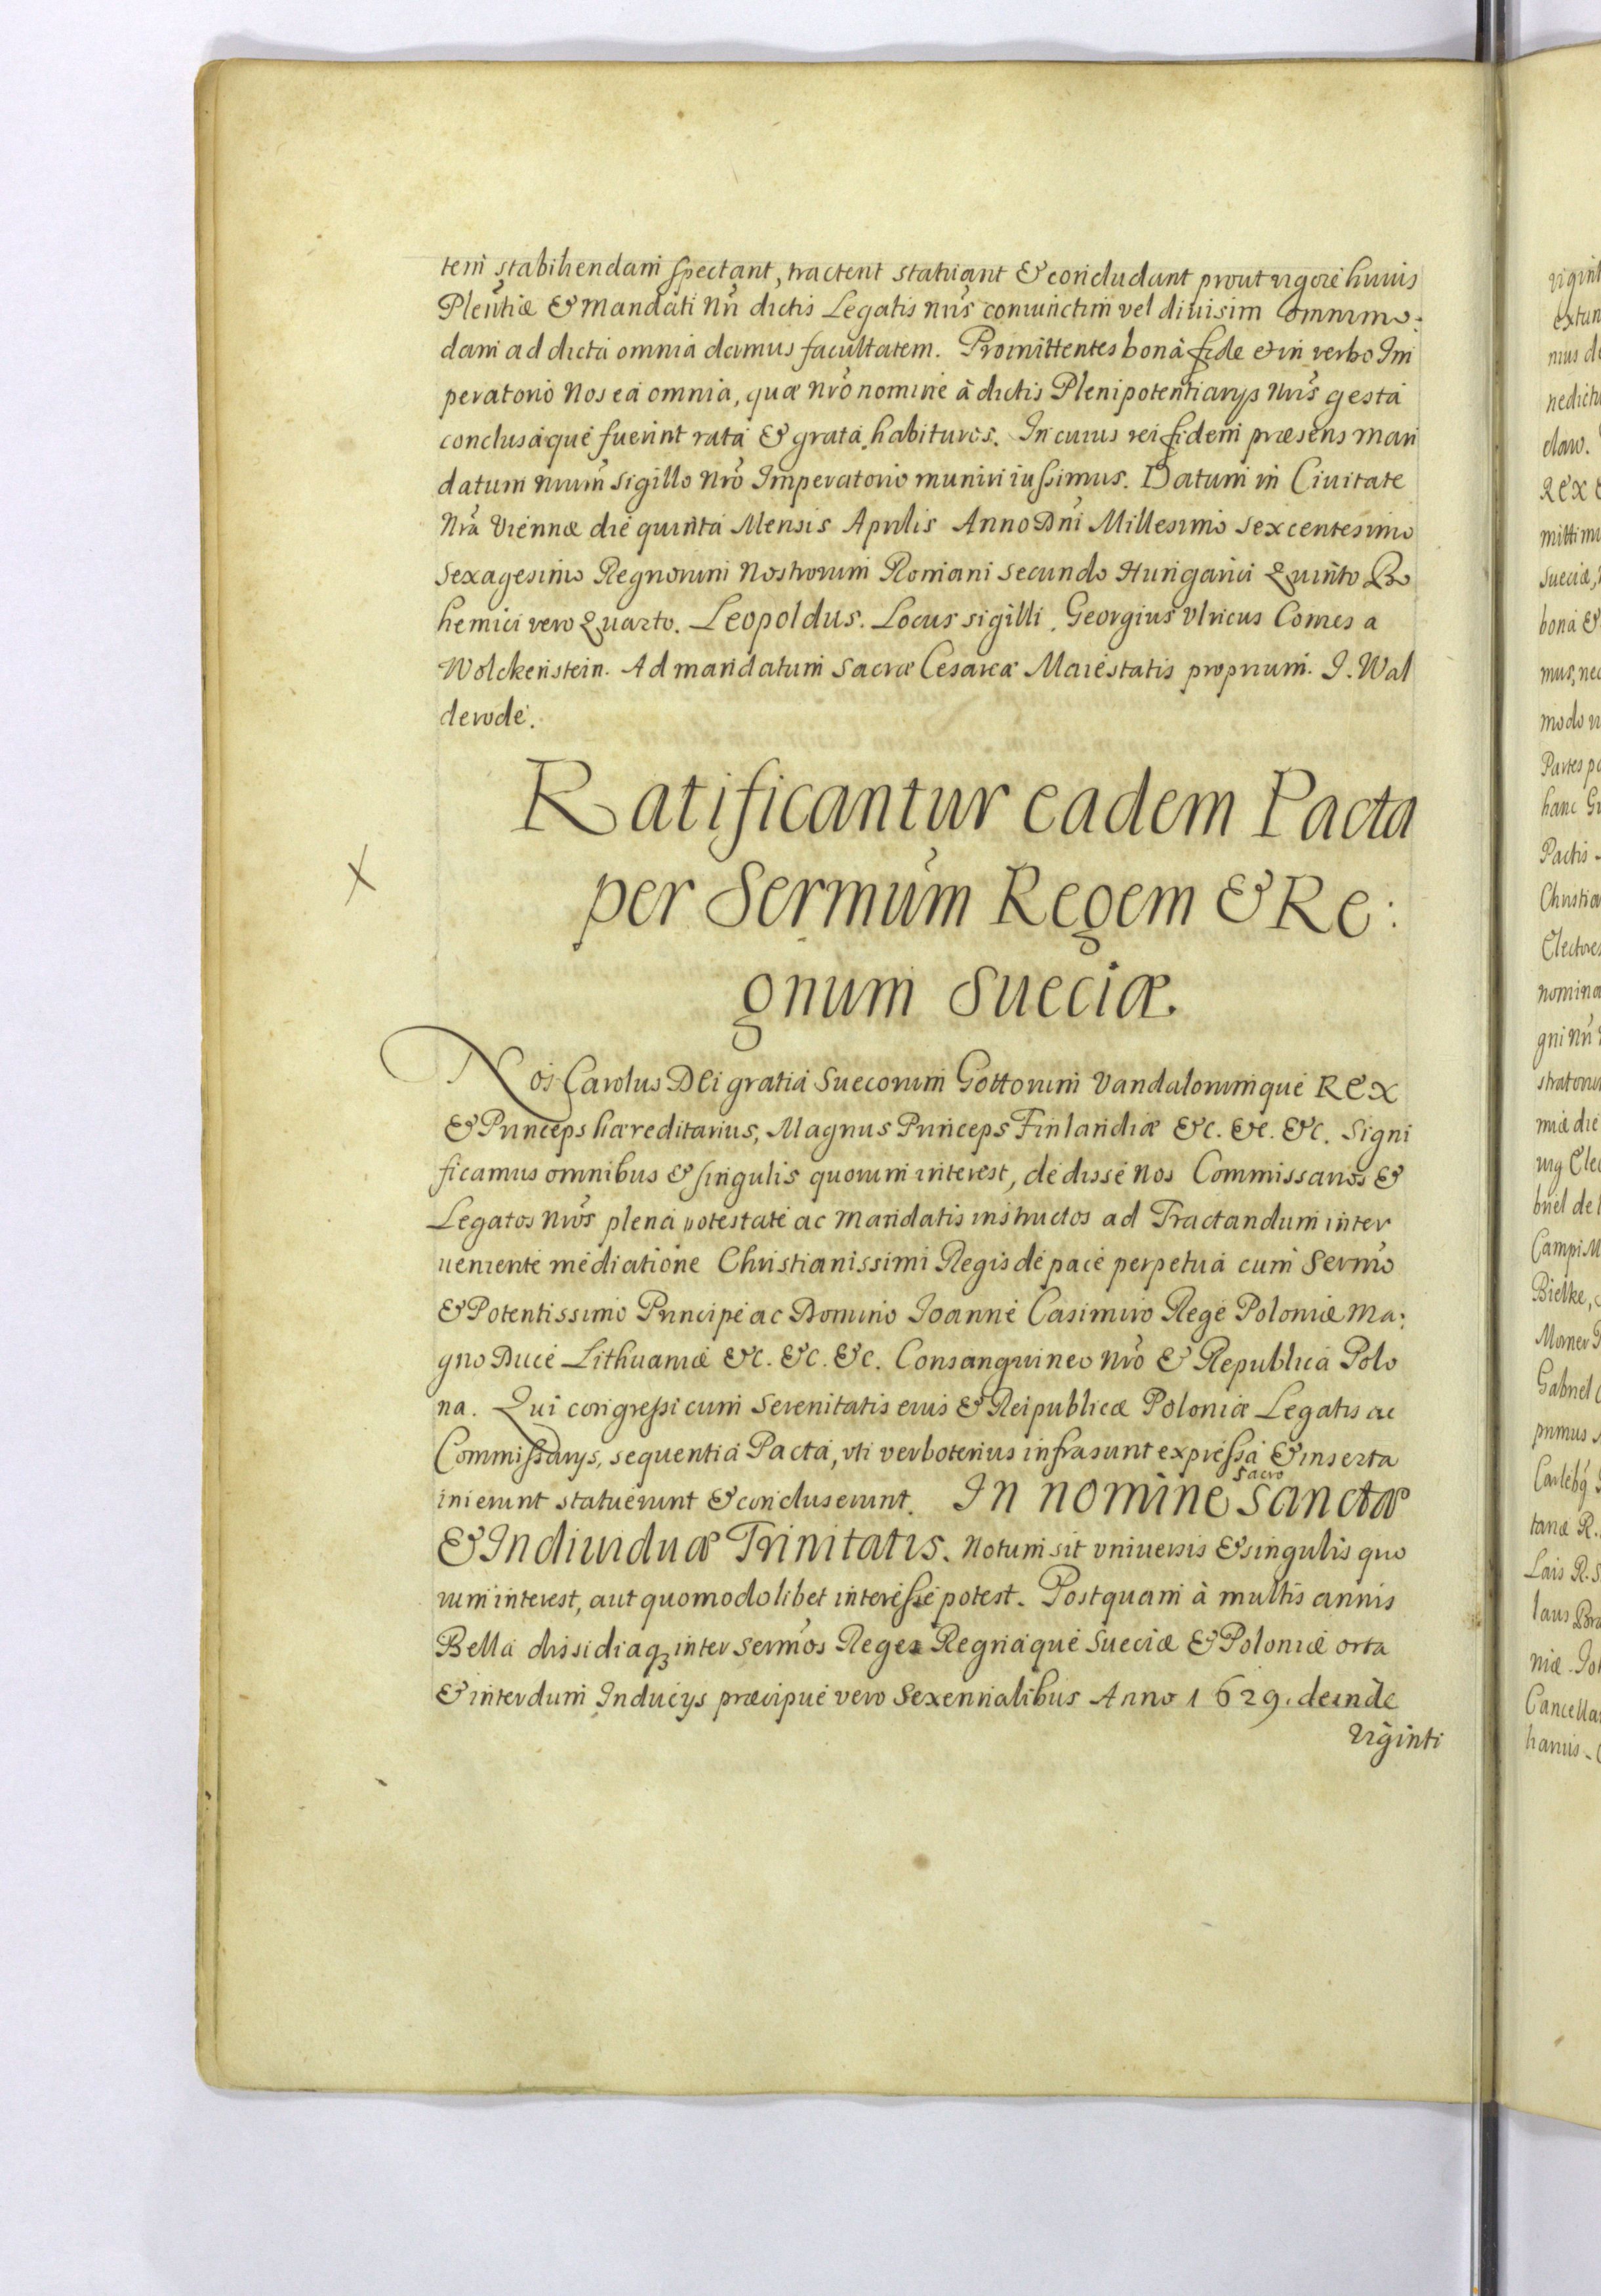 tem stabiliendam spectant, tractent statuant & concludant prout vigore huius
Plentiæ & Mandati Nri dictis Legatis Nris coniunctim vel diuisim omnimo:
dam ad dicta omnia damus facultatem. Promittentes bonâ fide et in verbo Im
peratorio Nos ea omnia, quæ nro nomine à dictis Plenipotentiarys Nris gesta
conclusaque fuerint rata & grata habituros. In cuius rei fidem præsens man
datum nrum sigillo Nro Imperatorio muniri iussimus. Datum in Ciuitate
Nra Viennæ die quinta Mensis Aprilis Anno Dni Millesimo sexcentesimo
Sexagesimo Regnorum Nostrorum Romani secundo Hungarici Quinto Bo
hemici vero Quarto. Leopoldus. Locus sigilli. Georgius Vlricus Comes a
Wolckenstein. Ad mandatum Sacræ Cesareæ Maiestatis proprium. I. Wal
derode.
Ratificantur eadem Pacta
per Sermum Regem & Re:
gnum Sueciæ.
X
Nos Carolus DEi gratia Suecorum Gottorum Vandalorumque REX
& Princeps hæreditarius, Magnus Princeps Finlandiæ &c. &c. &c. Signi
ficamus omnibus & singulis quorum interest, dedisse nos Commissarios &
Legatos Nros plena potestate ac Mandatis instructos ad Tractandum inter
ueniente mediatione Christianissimi Regis de pace perpetua cum Sermo
& Potentissimo Principe ac Domino Ioanne Casimiro Rege Poloniæ Ma:
gno Duce Lithuaniæ &c. &c. &c. Consanguineo Nro & Republica Polo
na. Qui congressi cum Serenitatis eius & Reipublicæ Poloniæ Legatis ac
Commissarys, sequentia Pacta, vti verbotenus infra sunt expressa & inserta
inierunt statuerunt & concluserunt. In nomine sacro sanctæ
& Indiuiduæ Trinitatis. Notum sit vniuersis & singulis quo
rum interest, aut quomodolibet interesse potest. Postquam à multis annis
Bella dissidiaq3 inter Sermos Reges Regnaque Sueciæ & Poloniæ orta
& interdum Inducys præcipue vero Sexennalibus Anno 1629. deinde
viginti